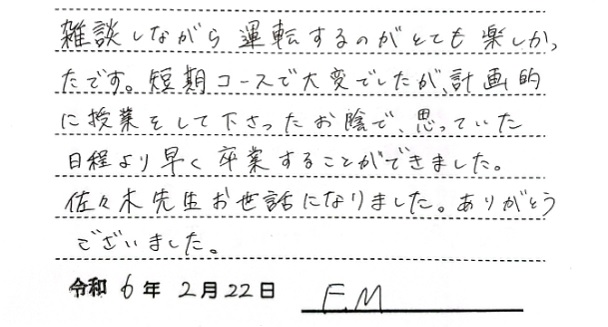 雑談しながら運転するのがとても楽しかっ
たです。短期コースで大変でしたが、計画的
に授業をして下さったお陰で、思っていた
日程より早く卒業することができました。
佐々木先生お世話になりました。ありがとう
ございました。
令和 6年 2月22日 F.M